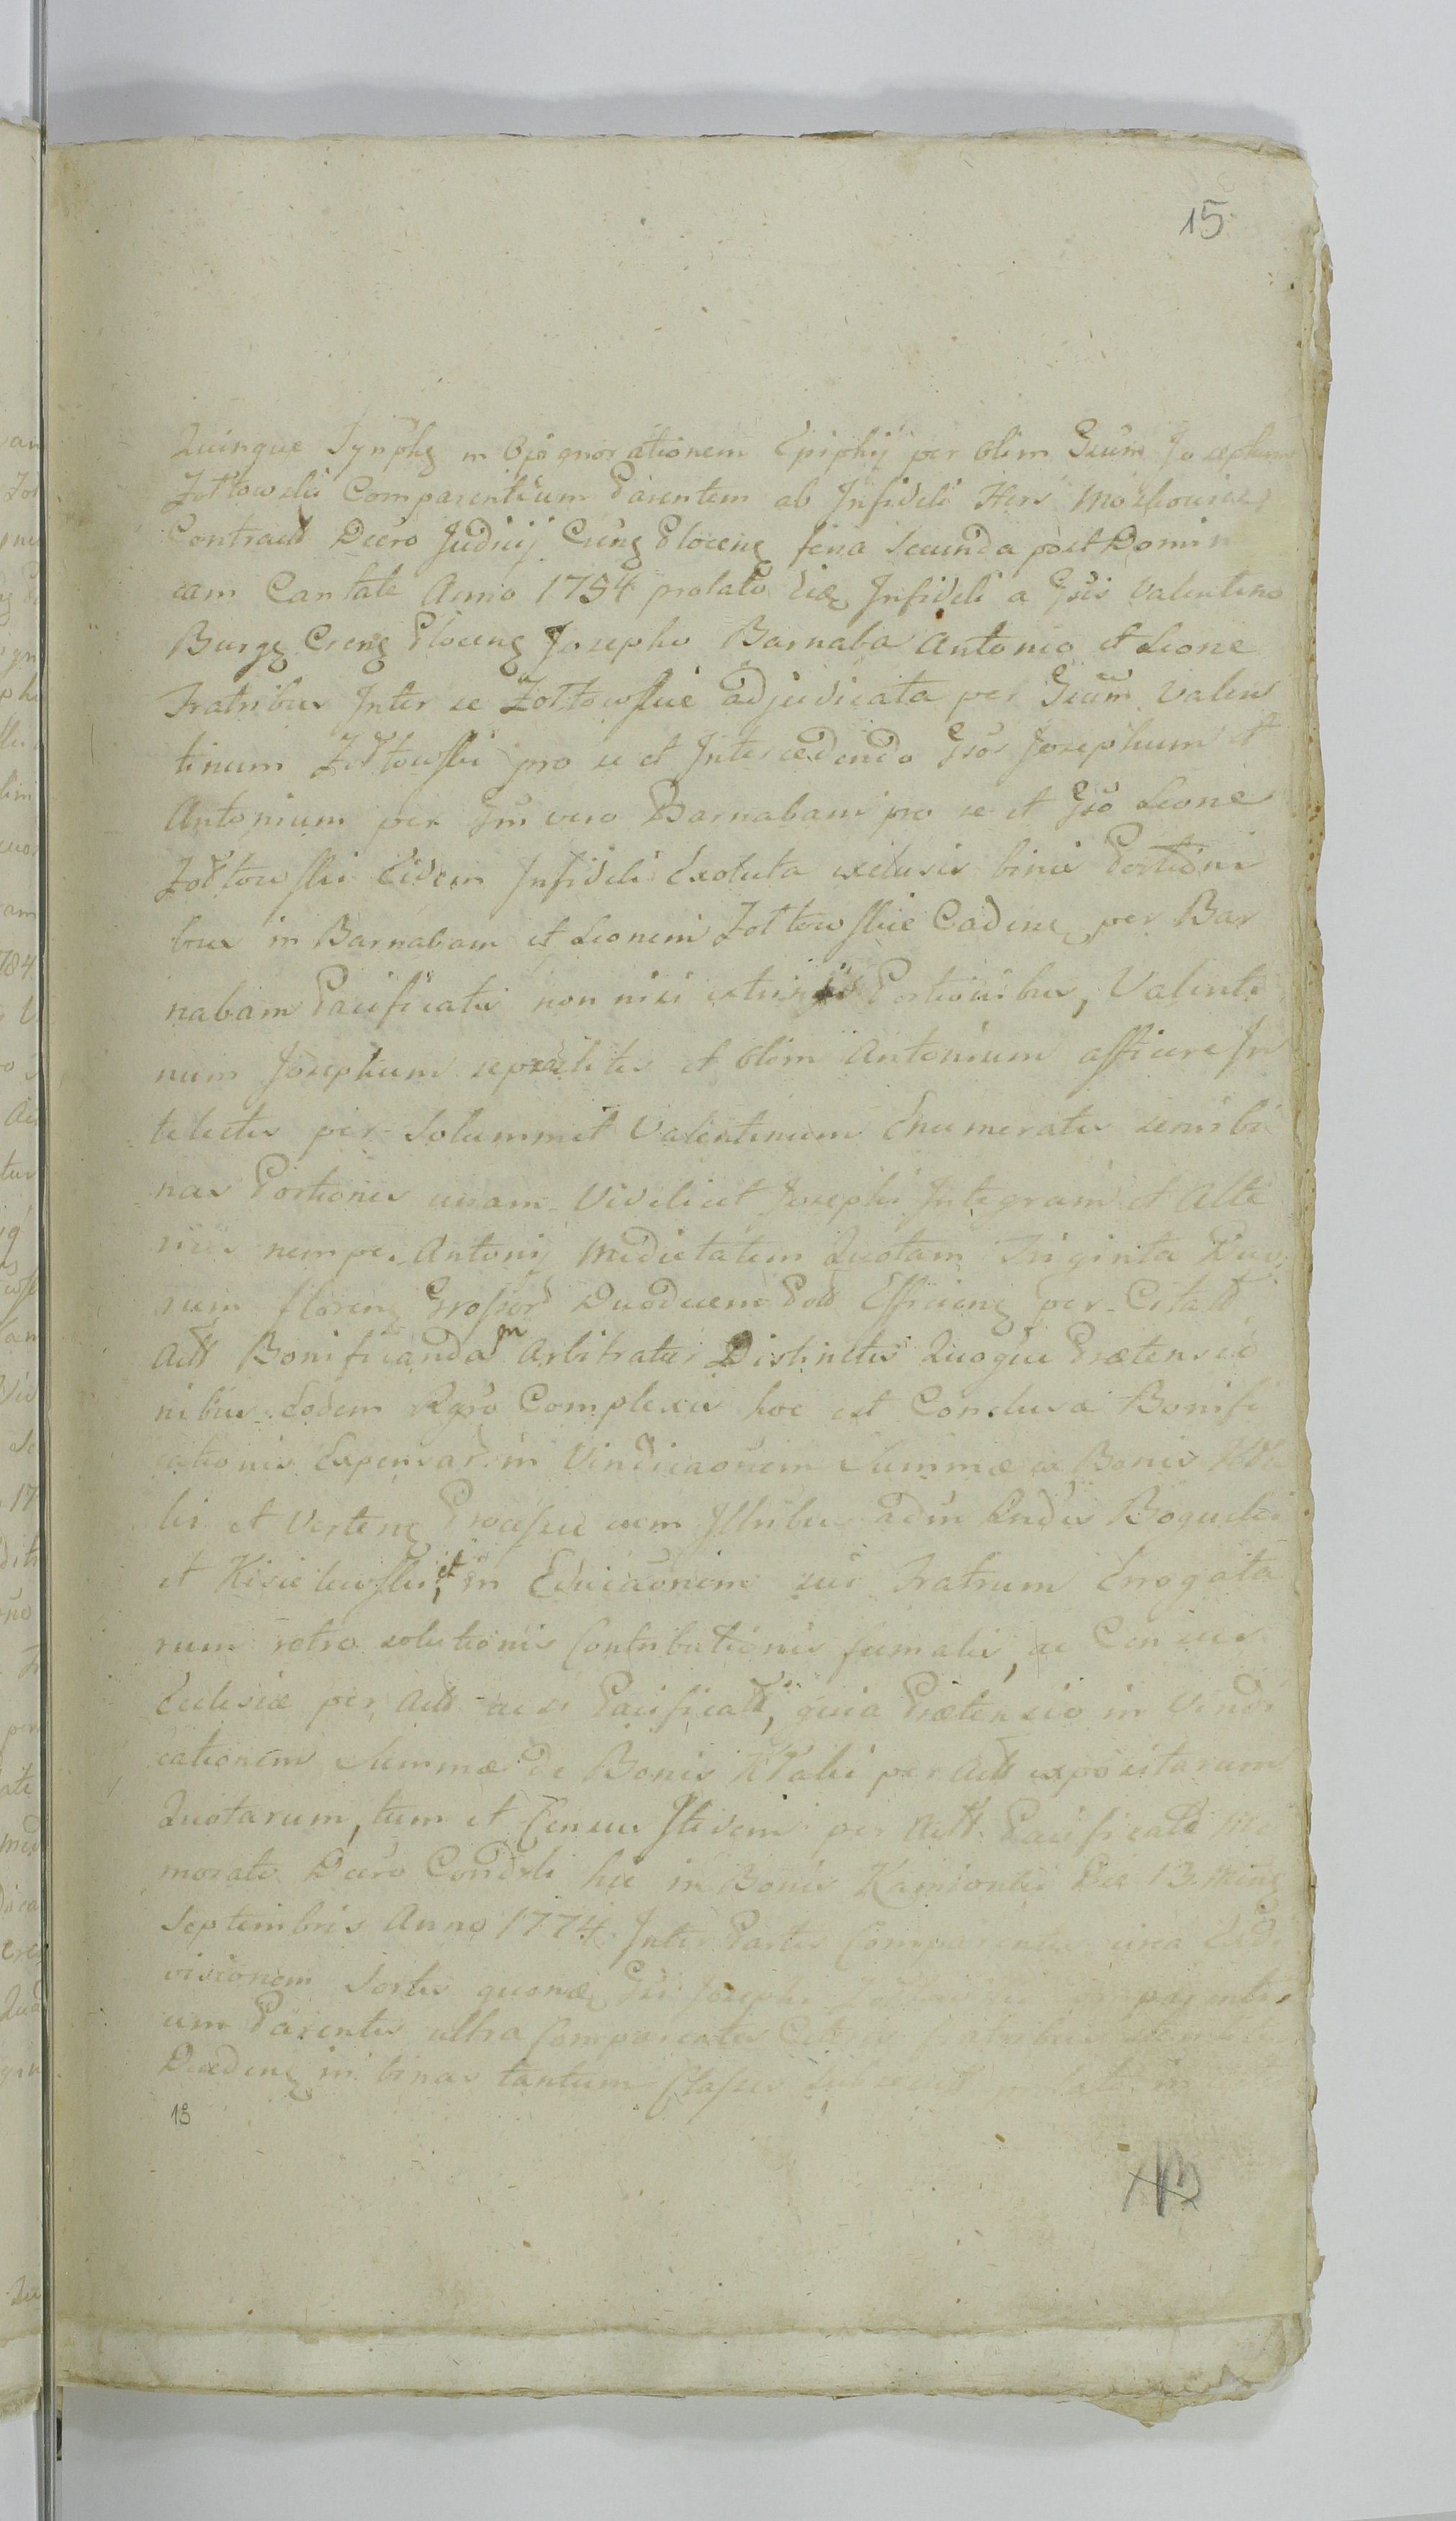 15
Quinque Tynph in Oppignorationem Epiphij per olim Gsum Josephum
Zołtowski Comparentium Parentem ab Infideli Hers Moskowicz
Contract Decro Judicij Cren Plocen feria secunda post Domin
cam Cantate Anno 1784 prolato Eid Infideli a Gsis Valentino
Burg Cren Plocen Josepho Barnaba Antonio et Leone
Fratribus Inter se Zołtowskie adjudicata per Gsum Valen
tinum Zołtowski pro se et Intercedendo Gsos Josephum et
Antonium per Gsm vero Barnabam pro se et Gso Leone
Zołtowski Eidem Infideli Exoluta exclusis binis Portioni
bus in Barnabam et Leonem Zołtowskie Caden per Bar
nabam Pacificatis non nisi Portionibus, Valenti
num Josephum et olim Antonium afficere In
tellectis per solummet Valentinum Enumeratis
nas Portiones unam videlicet Josephi Integram et Alte
rius nempe Antonij Medietatem Quotam Triginta Duo
rum floren Grossor Duodecem Poll Efficien per Citatt
Actt Bonificanda In Arbitratur Distinctis Quoque Prætensio
nibus Eodem Rgro Complexis hoc est Condusa Bonifi
cationis Expensar in Vindicaonem Summæ a Bonis
lis et Verten Processus cum Illribus Boguckis
et Kisielewski, et in Educaonem sui Fratrum Erogata
rum retro solutionis Contributionis fumalis, ac Census
Ecclesiæ per Actt ac si Pacificatt, quia Prætensio in Vindi
cationem Summæ de Bonis per Actt expositarum
Quotarum, tum et Census Itidem per Actt Pacificatt me
morato Decro Condli hic in Bonis Kamionki Die 13 Men
Septembris Anno 1774 Inter Partes Comparentes circa Exdi
visionem Sortis quond Gsi Josephi Comparenti
um Parentis ultra Comparentes Cetris fratribus
Deceden in binas tantum Classes prolato in
13
13